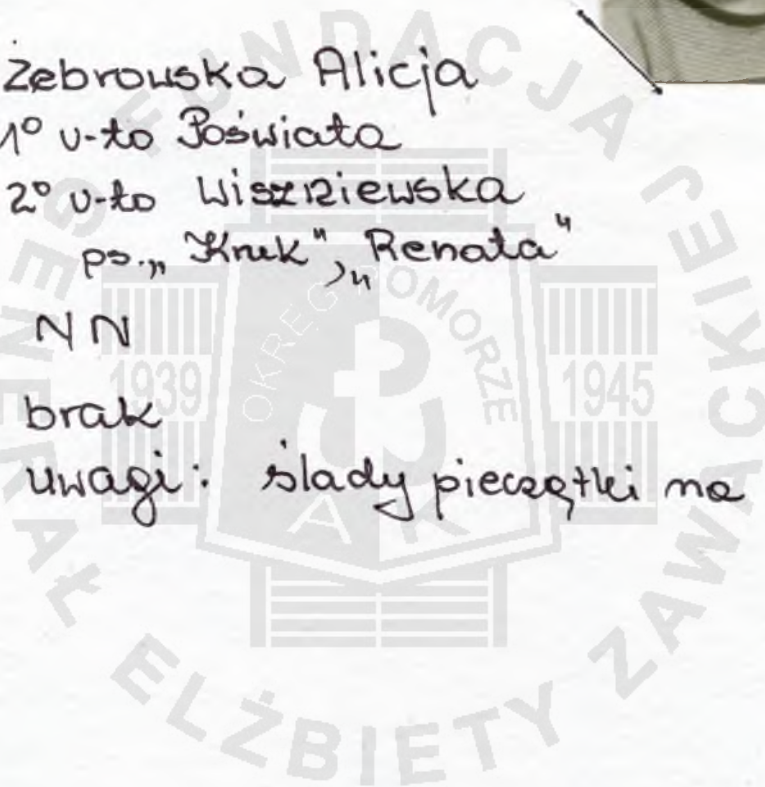 Żebrowska Alicja
1° v-to Poświata
2° v-to Wiszniewska
ps. „Kruk", „Renata"
NN
brak
uwagi: ślady pieczątki na
FUNDACJA GENERAŁ ELŻBIETY ZAWACKIEJ
OKRĘG POMORZE
1939
1945
AK